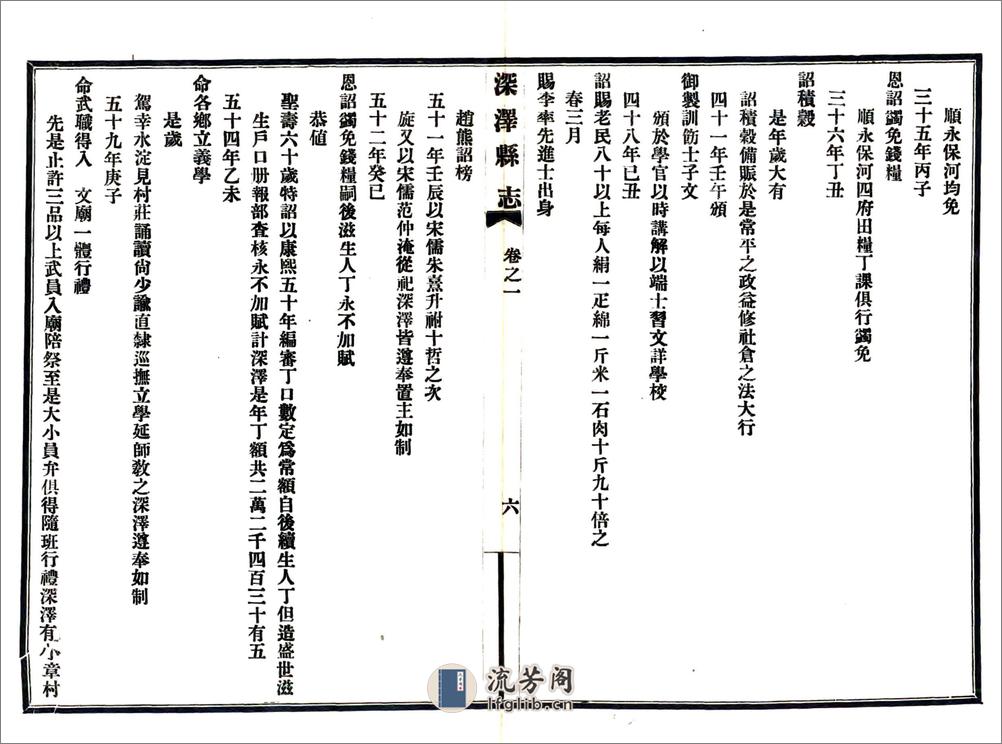 順永保河均免
三十五年丙子
恩詔蠲免錢糧
順永保河四府田糧丁課俱行蠲免
三十六年丁丑
詔積穀
是年歲大有
詔積穀備賑於是常平之政益修社倉之法大行
四十一年壬午頒
御製訓飭士子文
頒於學官以時講解以端士習文詳學校
四十八年己丑
詔賜老民八十以上每人絹一疋綿一斤米一石肉十斤九十倍之
春三月
賜李率先進士出身
深澤縣志
卷之一
六
趙熊詔榜
五十一年壬辰以宋儒朱熹升祔十哲之次
旋又以宋儒范仲淹從祀深澤皆遵奉置主如制
五十二年癸巳
恩詔蠲免錢糧嗣後滋生人丁永不加賦
恭値
聖壽六十歲特詔以康熙五十年編審丁口數定爲常額自後續生人丁但造盛世滋
生戶口册報部查核永不加賦計深澤是年丁額共二萬二千四百三十有五
五十四年乙未
命各鄉立義學
是歲
駕幸水淀見村莊誦讀尙少諭直隸巡撫立學延師敎之深澤遵奉如制
五十九年庚子
命武職得入　文廟一體行禮
先是止許三品以上武員入廟陪祭至是大小員弁俱得隨班行禮深澤有小章村
流芳阁
lfglib.cn